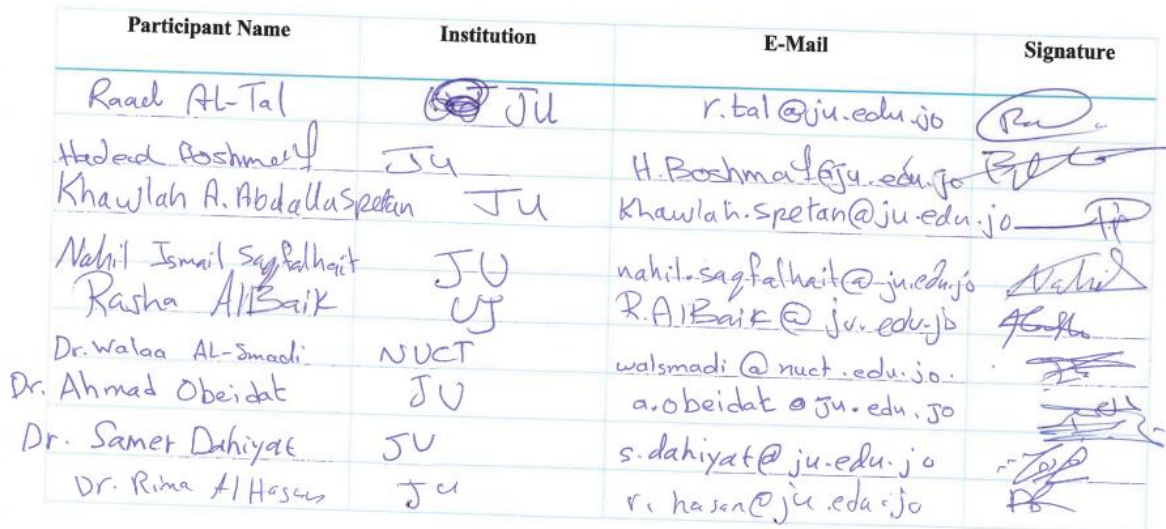 Participant Name Institution E-Mail Signature
Raad AL-Tal JU r.tal@ju.edu.jo
JU H.Boshmaf@ju.edu.jo
Khawlah A. Abdalla Spetan JU Khawlah.spetan@ju.edu.jo
Nahil Ismail Saqfalhait JU nahil.saqfalhait@ju.edu.jo Nahil
Rasha AlBaik UJ R.AlBaik@ju.edu.jo
Dr. Walaa AL-Smadi NUCT walsmadi@nuct.edu.jo.
Dr. Ahmad Obeidat JU a.obeidat@ju.edu.jo
Dr. Samer Dahiyat JU s.dahiyat@ju.edu.jo
Dr. Rima Al Hasan JU r.hasan@ju.edu.jo